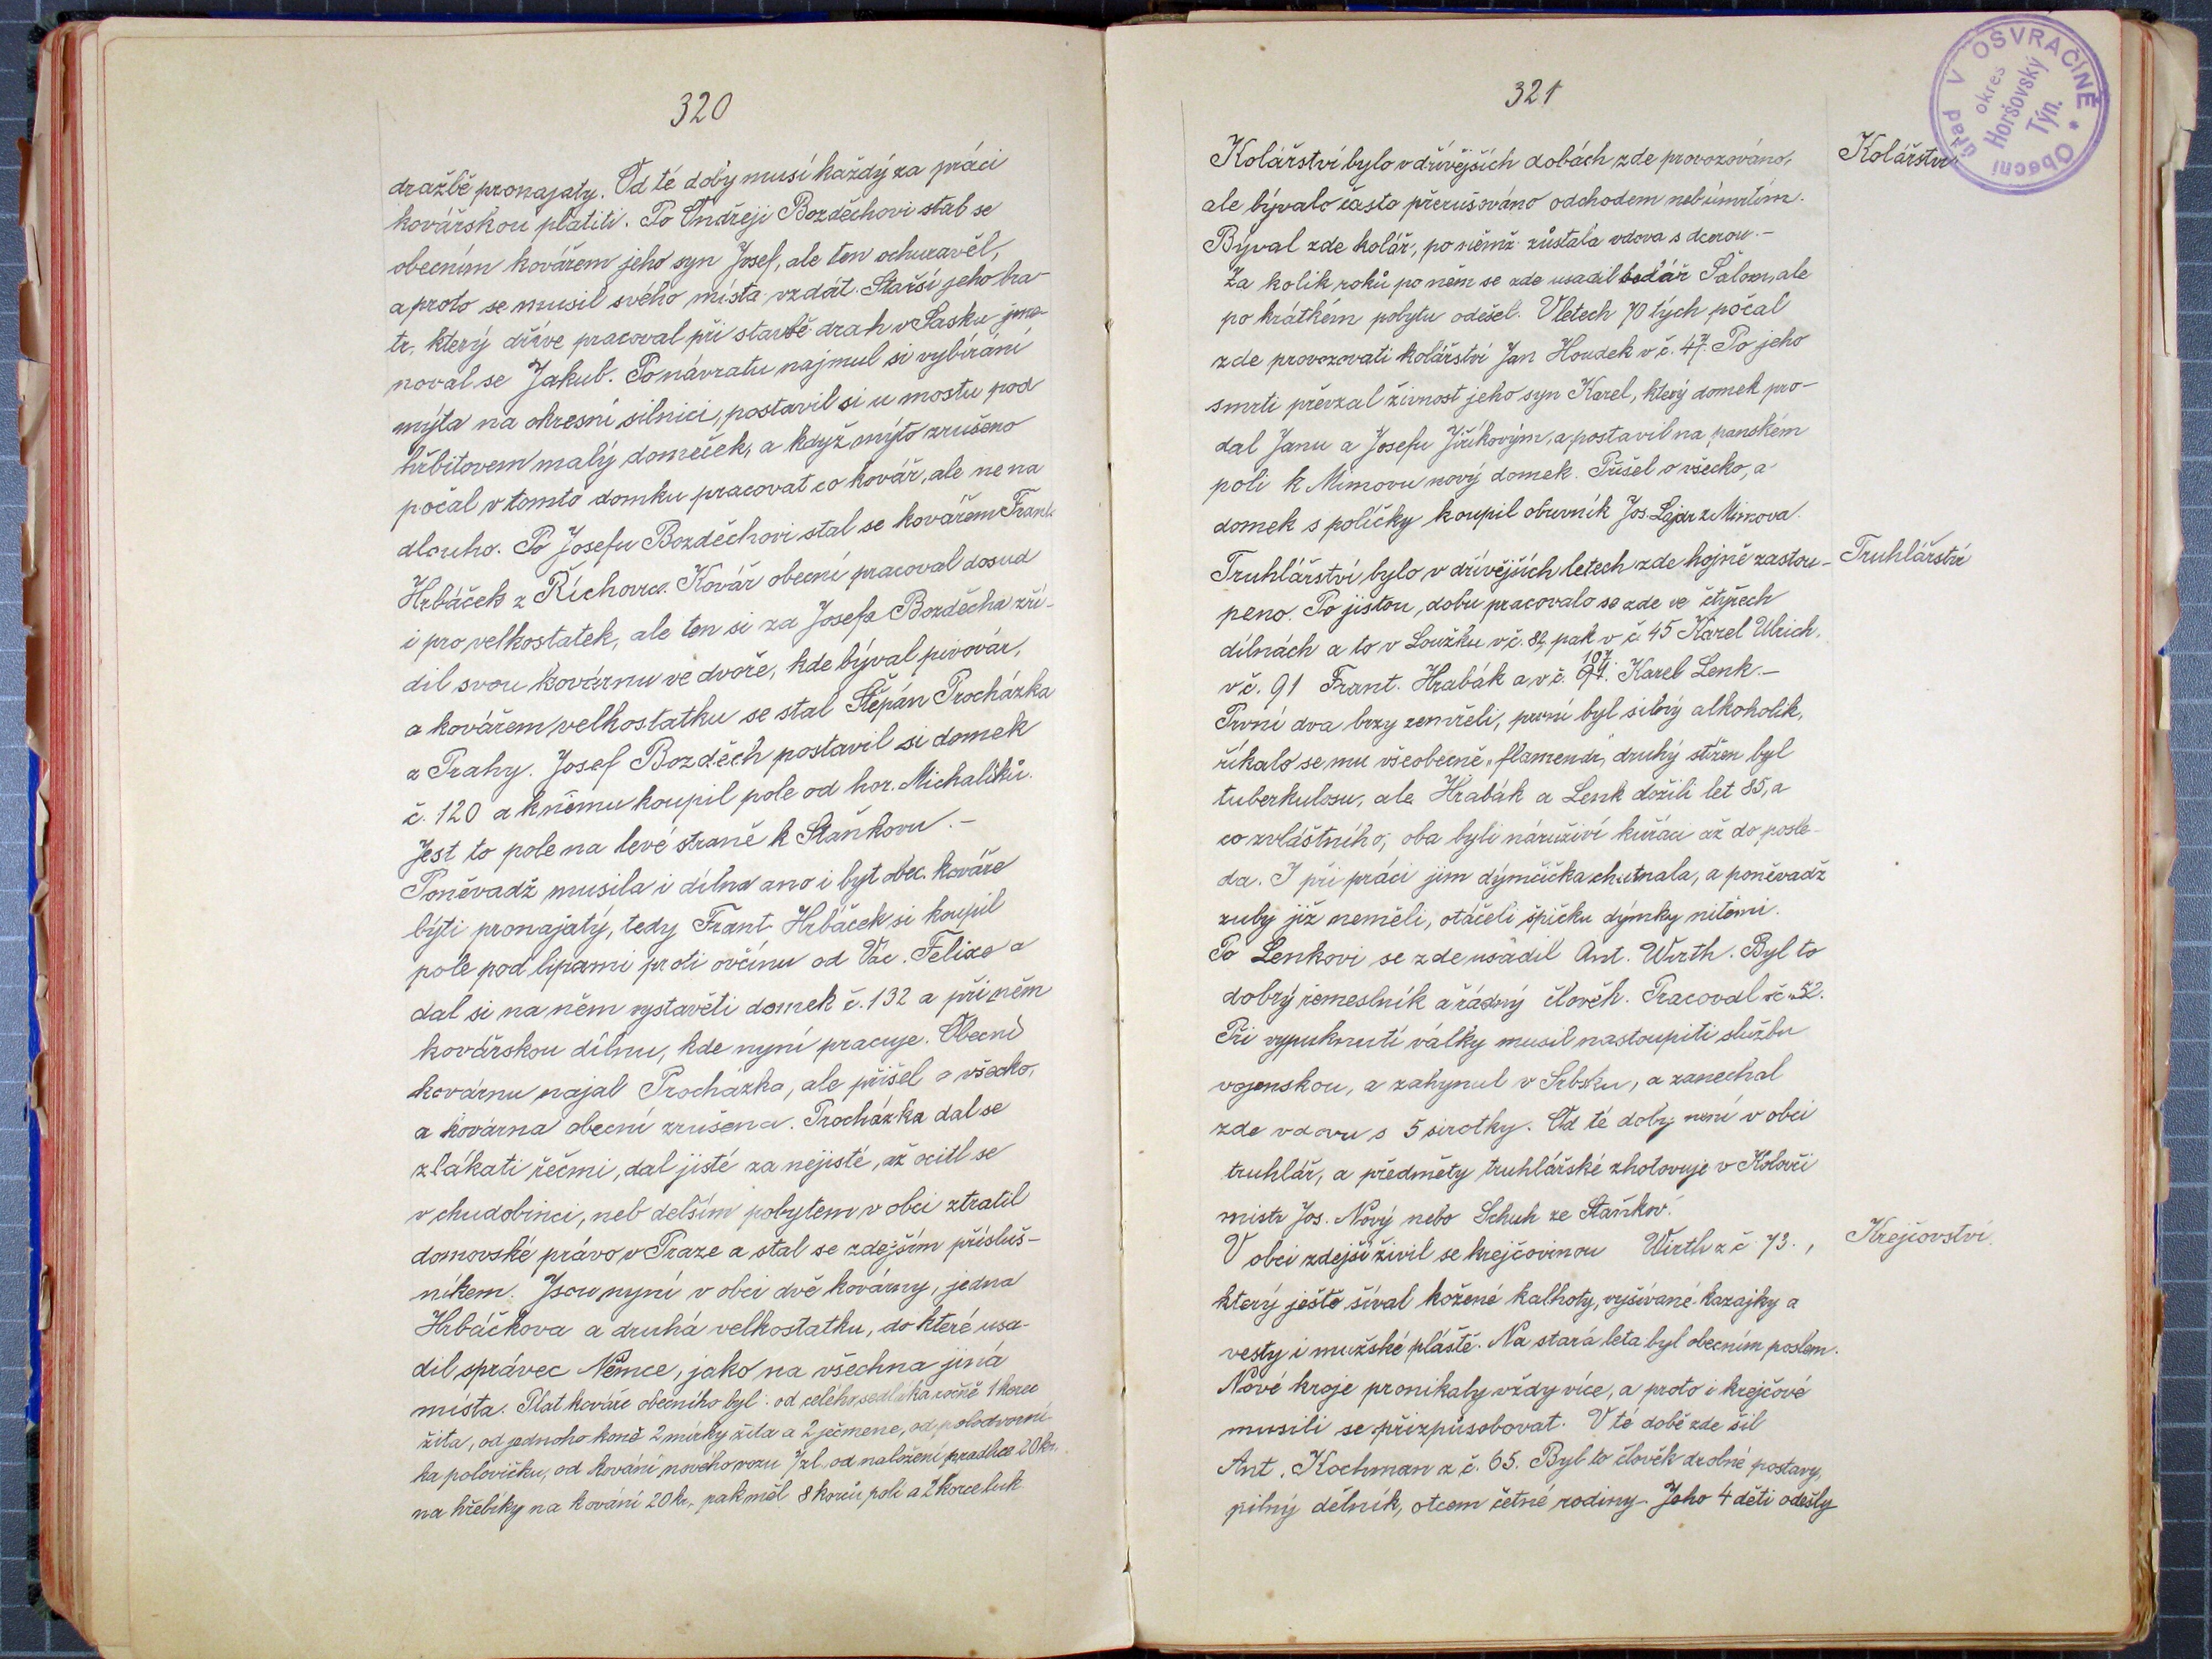 320
dražbě pronajaty. Od té doby musí každý za práci
kovářskou platiti. Po Ondřeji Bozděchovi stal se
obecním kovářem jeho syn Josef, ale ten ochuravěl,
a proto se musil svého místa vzdát. Starší jeho bra-
tr, který dříve pracoval při stavbě drah v Sasku jme-
noval se Jakub. Po návratu najmul si vybírání
mýta na okresní silnici, postavil si u mostu pod
hřbitovem malý domeček, a když mýto zrušeno
počal v tomto domku pracovat co kovář, ale ne na
dlouho. Po Josefu Bozděchovi stal se kovářem Frant.
Hrbáček z Říchova. Kovář obecní pracoval dosud
i pro velkostatek, ale ten si za Josefa Bozděcha zří-
dil svou kovárnu ve dvoře, kde býval pivovár,
a kovářem velkostatku se stal Štěpán Procházka
z Prahy. Josef Bozděch postavil si domek
č. 120 a k němu koupil pole od hor. Michalíků.
Jest to pole na levé straně k Staňkovu. -
Poněvadž musila i dílna ano i byt obec. kováře
býti pronajatý, tedy Frant. Hrbáček si koupil
pole pod lipami proti ovčínu od Vác. Felixe a
dal si na něm vystavěti domek č. 132 a při něm
kovářskou dílnu, kde nyní pracuje. Obecní
kovárnu najal Procházka, ale přišel o všecko,
a kovárna obecní zrušena. Procházka dal se
zlákati řečmi, dal jisté za nejisté, až ocitl se
v chudobinci, neb delším pobytem v obci ztratil
domovské právo v Praze a stal se zdejším přísluš-
níkem. Jsou nyní v obci dvě kovárny, jedna
Hrbáčkova a druhá velkostatku, do které usa-
dil správec Němce, jako na všechna jiná
místa. Plat kováře obecního byl: od celého sedláka ročně 1 korec
žita, od jednoho koně 2 mírky žita a 2 ječmene, od polodvorní-
ka polovičku, od kování nového vozu 7 zl. od naložení pradlice 20 kr.
na hřebíky na kování 20 kr, pak měl 8 korců polí a 2 korce luk.
321
Obecní úřad V OSVRAČÍNĚ *
okres
Horšovský
Týn.
Kolářství
Kolářství bylo v dřívějších dobách zde provozováno,
ale bývalo často přerušováno odchodem neb úmrtím.
Býval zde kolář, po němž zůstala vdova s dcerou. -
Za kolik roků po něm se zde usadil bednář Šalom, ale
po krátkém pobytu odešel. V letech 70 tých počal
zde provozovati kolářství Jan Houdek v č. 47. Po jeho
smrti převzal živnost jeho syn Karel, který domek pro-
dal Janu a Josefu Jiříkovým, a postavil na panském
poli k Mimovu nový domek. Přišel o všecko, a
domek s políčky koupil obuvník Jos. Lajdr z Mimova.
Truhlářství
Truhlářství bylo v dřívějších letech zde hojně zastou-
peno. Po jistou, dobu pracovalo se zde ve čtyřech
dílnách a to v Loužku v č. 82, pak v č. 45 Karel Ulrich.
107
v č. 91 Frant. Hrabák a v č. 94. Karel Lenk. -
První dva brzy zemřeli, první byl silný alkoholik,
říkalo se mu všeobecně „flamendr," druhý stížen byl
tuberkulosu, ale Hrabák a Lenk dožili let 85, a
co zvláštního, oba byli náruživí kuřáci až do posle-
da. I při práci jim dýmčička chutnala, a poněvadž
zuby již neměli, otáčeli špičku dýmky nitěmi.
Po Lenkovi se zde usadil Ant. Wirth. Byl to
dobrý řemeslník a řádný člověk. Pracoval v č. 52.
Při vypuknutí války musil nastoupiti službu
vojenskou, a zahynul v Srbsku, a zanechal
zde vdovu s 5 sirotky. Od té doby není v obci
truhlář, a předměty truhlářské zhotovuje v Kolovči
mistr Jos. Nový nebo Schuh ze Staňkov.
Krejčovství.
V obci zdejší živil se krejčovinou Wirth z č. 73.,
který ještě šíval kožené kalhoty, vyšívané kazajky a
vesty i mužské pláště. Na stará leta byl obecním poslem.
Nové kroje pronikaly vždy více, a proto i krejčové
musili se přizpůsobovat. V té době zde šil
Ant. Kochman z č. 65. Byl to člověk drobné postavy,
pilný dělník, otcem četné rodiny. Jeho 4 děti odešly